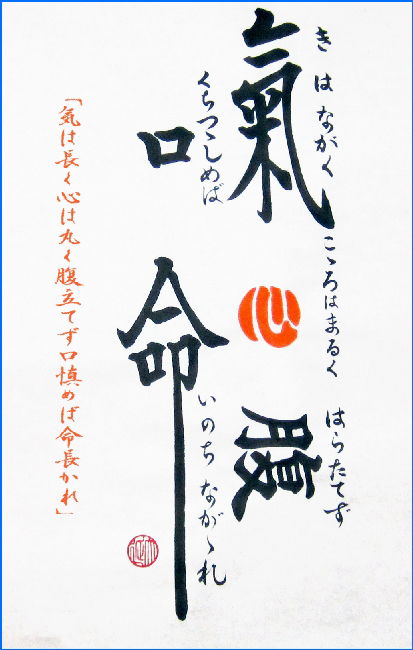 氣
きはながく
心
こゝろはまるく
腹
はらたてず
口
くちつゝしめば
命
いのちながゝれ
「気は長く心は丸く腹立てず口慎めば命長かれ」